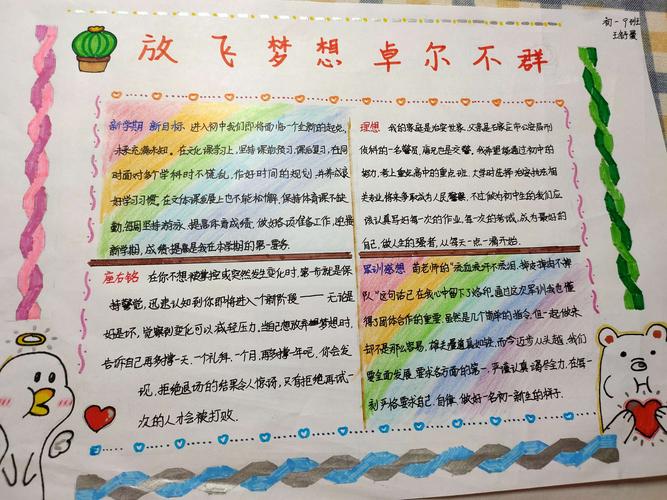 放飞梦想 卓尔不群
初一9班
王舒蔓
新学期 新目标 进入初中我们即将面临一个全新的起点,
未来充满未知。在文化课学习上,坚持课前预习,课后复习,在同
时面对多个学科时不慌乱,作好时间的规划,并养成良
好学习习惯。在文体课业展上也不能松懈,保持体育课不缺
勤,每周坚持游泳,提高体育成绩,做好各项准备工作,迎接
新学期,成绩提高是我在本学期的第一要务。
理想 我的家庭是治安世家,父亲是石家庄市公安局刑
侦科的一名警员,麻麻也是交警。我希望能通过初中的
努力,考上重点高中的重点班,大学时选择治安执法相
关专业,将来争取成为人民警察。不过做为初中生的我们应
该认真写好每一次的作业,每一次的考试,成为最好的
自己,做人生的强者,从每天一点一滴开始。
座右铭 在你不想被掌控或突然发生变化时,第一步就是保
持警觉,迅速认知到你即将进入一个新阶段——无论是
好是坏,觉察到变化可以减轻压力,当自己想放弃梦想时,
告诉自己再多撑一天、一个礼拜、一个月,再多撑一年吧,你会发
现,拒绝退场的结果令人惊讶,只有拒绝再试一
次的人才会被打败。
军训感想 苗老师的“流血流汗不流泪,掉皮掉肉不掉
队”这句话已在我心中留下了烙印。通过这次军训我也懂
得了团体合作的重要,虽然是几个简单的指令,但一起做来
却不是那么容易。雄关漫道真如铁,而今迈步从头越,我们
要全面发展,要求各方面的第一,严谨认真,竭尽全力,在每一
刻严格要求自己,自律,做好一名初一新生的样子。